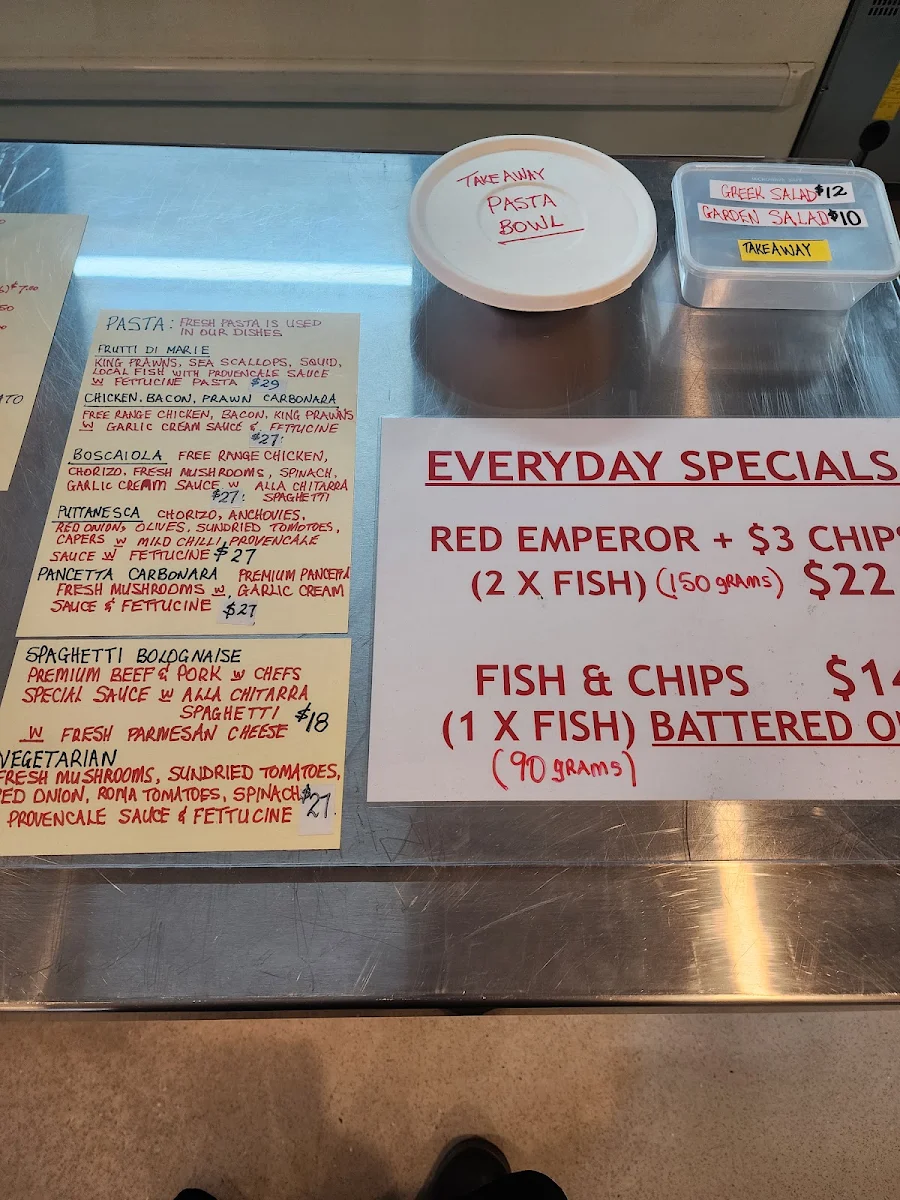 TAKEAWAY
PASTA
BOWL
GREEK SALAD $12
GARDEN SALAD $10
TAKEAWAY
$7.00
PASTA: FRESH PASTA IS USED
IN OUR DISHES
FRUTTI DI MARIE
KING PRAWNS, SEA SCALLOPS, SQUID,
LOCAL FISH WITH PROVENCALE SAUCE
W FETTUCINE PASTA $29
CHICKEN, BACON, PRAWN CARBONARA
FREE RANGE CHICKEN, BACON, KING PRAWNS
W GARLIC CREAM SAUCE & FETTUCINE
$27
BOSCAIOLA FREE RANGE CHICKEN,
CHORIZO, FRESH MUSHROOMS, SPINACH,
GARLIC CREAM SAUCE W ALLA CHITARRA
$27 SPAGHETTI
PUTTANESCA CHORIZO, ANCHOVIES,
RED ONION, OLIVES, SUNDRIED TOMOTOES,
CAPERS W MILD CHILLI, PROVENCALE
SAUCE W FETTUCINE $27
PANCETTA CARBONARA PREMIUM PANCETTA
FRESH MUSHROOMS W GARLIC CREAM
SAUCE & FETTUCINE $27
SPAGHETTI BOLOGNAISE
PREMIUM BEEF & PORK W CHEFS
SPECIAL SAUCE W ALLA CHITARRA
SPAGHETTI $18
W FRESH PARMESAN CHEESE
VEGETARIAN
FRESH MUSHROOMS, SUNDRIED TOMATOES,
RED ONION, ROMA TOMATOES, SPINACH $27
PROVENCALE SAUCE & FETTUCINE
EVERYDAY SPECIALS
RED EMPEROR + $3 CHIPS
(2 X FISH) (150 GRAMS) $22
FISH & CHIPS $14
(1 X FISH) BATTERED
(90 GRAMS)